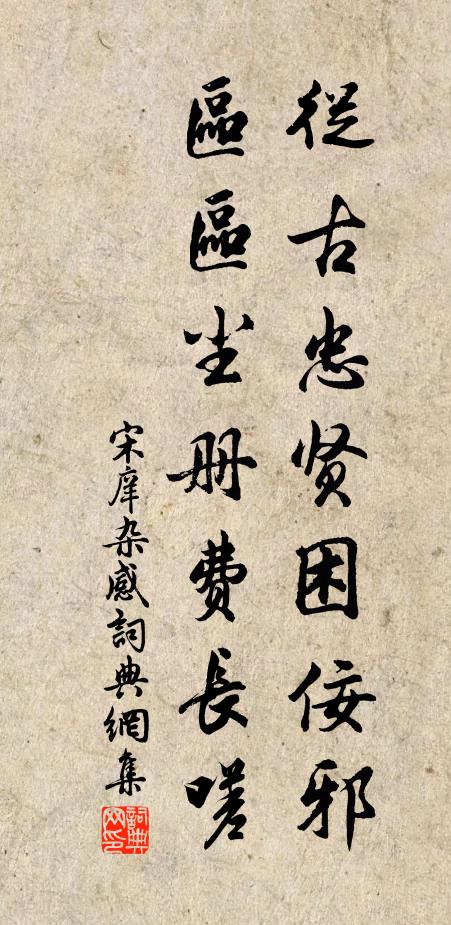 從古忠贤困佞邪
區區尘册費長嗟
宋庠杂感詞典網集
詞典網印